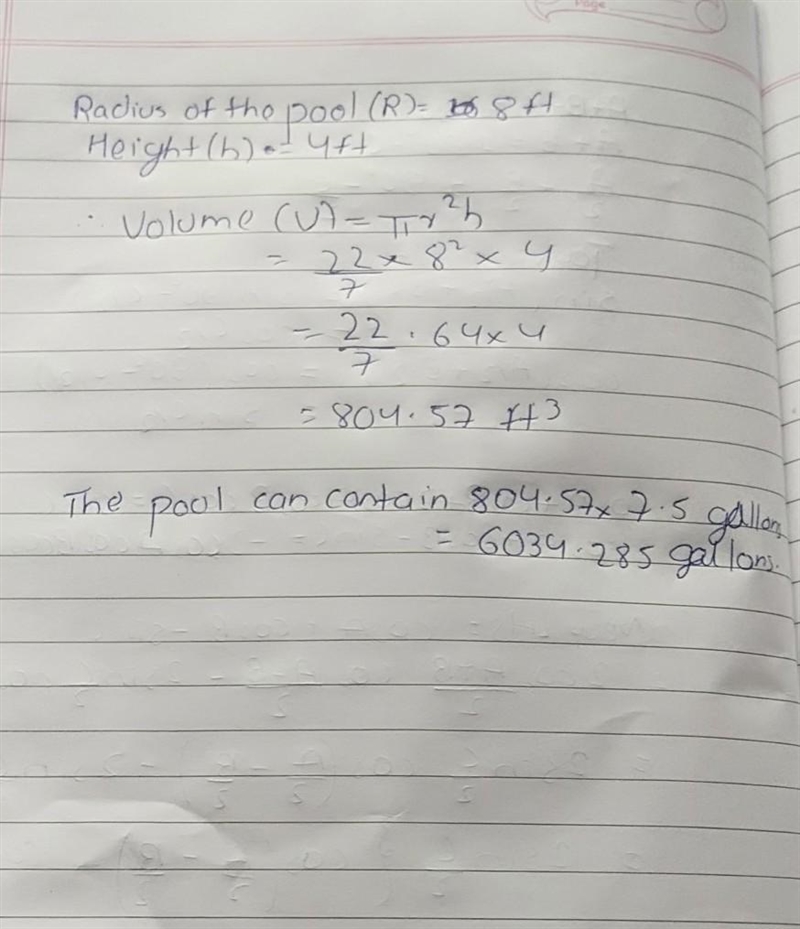 Page
Radius of the pool (R) = 8 ft
Height (h) = 4 ft
∴ Volume (V) = πr²h
= 22/7 × 8² × 4
= 22/7 · 64 × 4
= 804.57 ft³
The pool can contain 804.57 × 7.5 gallons
= 6034.285 gallons.